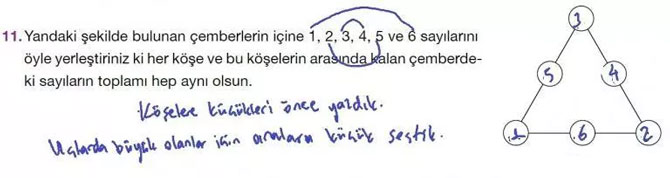 11. Yandaki şekilde bulunan çemberlerin içine 1, 2, 3, 4, 5 ve 6 sayılarını
öyle yerleştiriniz ki her köşe ve bu köşelerin arasında kalan çemberde-
ki sayıların toplamı hep aynı olsun.
Köşelere küçükleri önce yazdık.
Uçlarda büyük olanlar için aralara küçük seçtik.
3
5 4
1 6 2